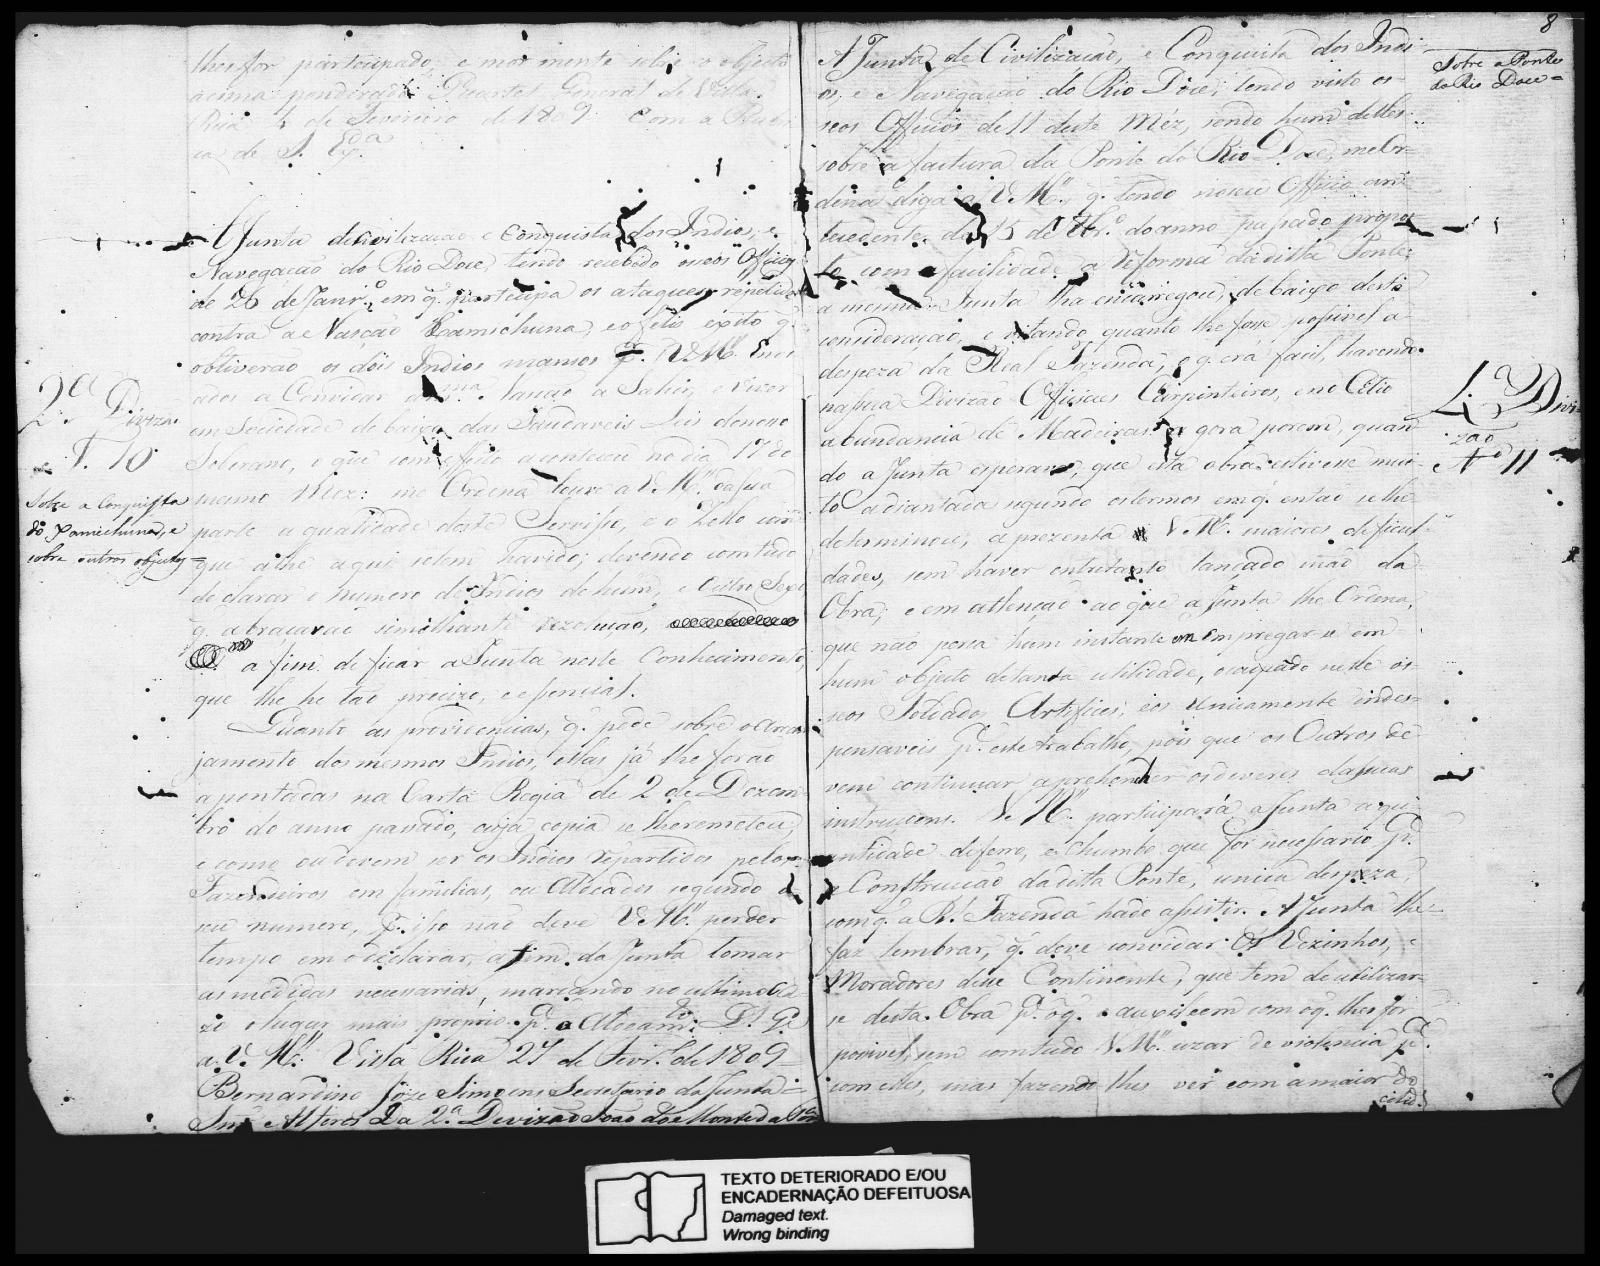 lhes for participado, e mor mente sobre o objecto
acima ponderado. Quartel General de Villa
Rica 4 de Fevereiro de 1809. Com a Rubri
ca de S. Exª
A Junta de Civilização e Conquista dos Indios, e
Navegação do Rio Doce, tendo recebido os seos Officios
de 26 de Janrº, em q. participa os ataques repetidos
contra a Nasção, e o feliz exito q.
obtiverão os dois Indios mansos q. VMce.
a Convidar a Nasção a Sahir, e viver
em Sociedade debaixo das Saudaveis Leis do nosso
Soberano, o que com effeito aconteceo no dia 17 do
mesmo Mez: me Ordena louve a VMce. da sua
parte a qualidade deste Serviço, e o Zello com
que athe aqui setem havido; devendo comtudo
declarar o numero de Indios de hum, e outro Sexo
q. abraçarão similhante rezolução,
a fim de ficar a Junta neste Conhecimento,
que lhe he tão precizo, e essencial.
Quanto as providencias, q. pede sobre o arran
jamento dos mesmos Indios, ellas já lhe forão
apontadas na Carta Regia de 2 de Dezem
bro do anno passado, cuja copia se lhe remeteu,
e como ou devem ser os Indios repartidos pelos
Fazendeiros em familias, ou Aldeados segundo o
seu numero, p. isso não deve VMce. perder
tempo em o declarar, a fim da Junta tomar
as medidas necessarias, marcando no ultimo ca
zo o lugar mais proprio pª. o Aldeamto. Ds. Ge.
a V. Mce. Villa Rica 27 de Fevrº. de 1809
Bernardino Joze Simoens Secretario da Junta =
Snr. Alferes Da 2ª. Divizão João do Monte da
2ª Divizão
N. 10
Sobre a Conquista
do, e
sobre outros objectos =
8
A Junta de Civilização, e Conquista dos Indi
os, e Navegação do Rio Doce, tendo visto os
seos Officios de 11 deste Mêz, sendo hum delles
sobre a factura da Ponte do Rio Doce, me Or
dena diga a VMce., q. tendo no seu Officio an
tecedente de 15 de do anno passado propos
to com facilidade a reforma da ditta Ponte,
a mesma Junta lha encarregou, debaixo desta
consideração, e vitando quanto lhe fosse possivel a
despeza da Real Fazenda, o q. era facil, havendo
na sua Divizão Officiaes Carpinteiros, e no Citio
abundancia de Madeiras: agora porem, quan
do a Junta esperava, que esta obra estivesse mui
to adiantada segundo os termos em q. entao se lhe
determinou, aprezenta VMce. maiores dificul
dades, sem haver entretanto lançado mão da
Obra; e em attenção ao que a Junta lhe Ordena,
que não possa hum instante empregar-se em
hum objecto de tanta utilidade, ocupado nelle os
seos Soldados Artifices, e os unicamente indes
pensaveis pª. este trabalho, pois que os Outros de
vem continuar a prehencher os deveres das suas
instruçoens. V. Mce. participará a Junta a qu
antidade de ferro, e Chumbo que for necessario pª.
a Construcção da ditta Ponte, unica despeza,
com q. a Rl. Fazenda hade assistir. A Junta lhe
faz lembrar, q. deve convidar Os Vezinhos, e
Moradores desse Continente, que tem de utilizar
se desta Obra pª. o q. auxiliem com o q. lhes for
possivel, sem comtudo VMce. uzar de violencia pª.
com elles, mas fazendo lhes ver com a maior do
cilid.
Sobre a Ponte
do Rio Doce =
Divi
zão
Nº 11
TEXTO DETERIORADO E/OU
ENCADERNAÇÃO DEFEITUOSA
Damaged text.
Wrong binding